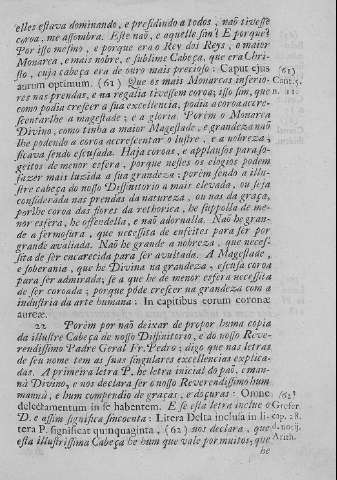 elles estava dominando, e presidindo a todos, naõ tivesse
coroa, me assombra. Este naõ, e aquelle sim? E porque?
Por isso mesmo, e porque era o Rey dos Reys, o maior
Monarca, e mais nobre, e sublime Cabeça, que era Chri-
sto, cuja cabeça era de ouro mais precioso: Caput ejus
aurum optimum. (61) Que os mais Monarcas inferio-
res nas prendas, e na regalia tivessem coroa; isso sim, que
como podia crescer a sua excellencia, podia a coroa acre-
scentarlhe a magestade; e a gloria. Porém o Monarca
Divino, como tinha a maior Magestade, e grandeza naõ
lhe podendo a coroa accrescentar o lustre, e a nobreza;
ficava sendo escusada. Haja coroas, e applausos para so-
geitos de menor esfera, porque nesses os elogios podem
fazer mais luzida a sua grandeza: porém sendo a illu-
stre cabeça do nosso Deffinitorio a mais elevada, ou seja
considerada nas prendas da natureza, ou nas da graça,
porlhe coroa das flores da rethorica, he suppolla de me-
nor esfera, he offendella, e naõ adornalla. Naõ he gran-
de a fermosura, que necessita de enfeites para ser por
grande avaliada. Naõ he grande a nobreza, que neces-
sita de ser encarecida para ser avultada. A Magestade,
e soberania, que he Divina na grandeza, escusa coroa
para ser admirada; se a que he de menor esfera necessita
de ser coroada; porque póde crescer na grandeza com a
industria da arte humana: In capitibus eorum coronæ
aureæ.
22 Porém por naõ deixar de propor huma copia
da illustre Cabeça de nosso Diffinitorio, e do nosso Reve-
rendissimo Padre Geral Fr. Pedro; digo que nas letras
de seu nome tem as suas singulares excellencias explica-
das. A primeira letra P. he letra inicial do paõ, e man-
ná Divino, e nos declara ser o nosso Reverendissimo hum
manná, e hum compendio de graças, e doçuras: Omne
delectamentum in se habentem. E se esta letra inclue o
D. e assim significa sincoenta: Litera Delta inclusa in li-
tera P. significat quinquaginta, (62) nos declara, que
esta illustrissima Cabeça he hum que vale por muitos; que
he
(61)
Cant. 5.
n. 11.
(62)
Gresser.
cap. 28.
d. notij.
Arith.